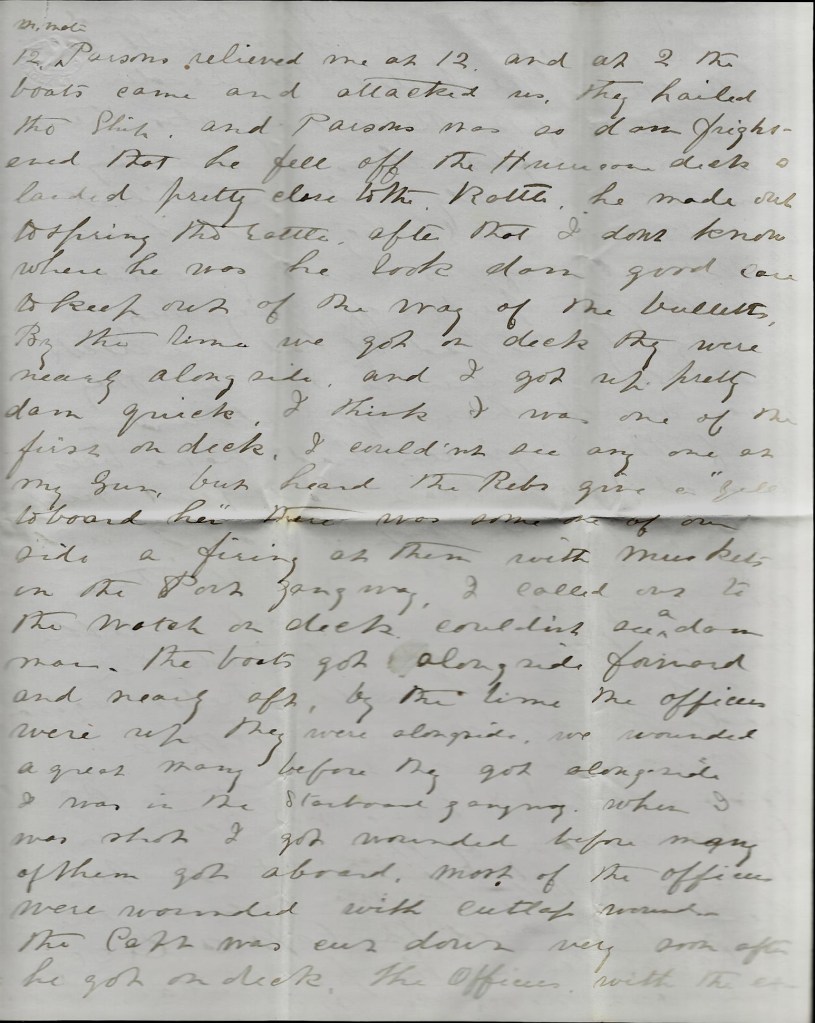 M. Mate
12. Parsons relieved me at 12. and at 2 the
boats came and attacked us, they hailed
the Ship. and Parsons was so dam fright-
ened that he fell off the Hurricane deck &
landed pretty close to the Rattle. he made out
to spring the rattle. after that I dont know
where he was he took dam good care
to keep out of the way of the bulletts,
By the time we got on deck they were
nearly alongside. and I got up pretty
dam quick, I think I was one of the
first on deck. I could'nt see any one at
my Gun, but heard the Rebs give a "yell
to board her" there was some one of our
side a firing at them with Muskets
in the Port gangway, I called out to
the watch on deck. could'nt see a dam
man. the boats got alongside forward
and nearly aft, by the time the officers
were up they were alongside. we wounded
a great many before they got alongside
I was in the Starboard gangway. when I
was shot I got wounded before many
of them got aboard. most of the officers
were wounded with cutlass wounds
the Capt was cut down very soon after
he got on deck. the Officers. with the